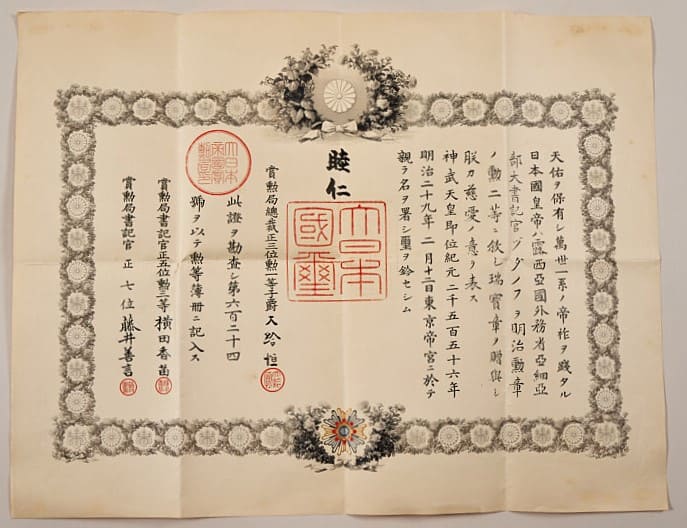 天佑ヲ保有シ萬世一系ノ帝祚ヲ踐タル
日本國皇帝ハ露西亞國外務省亞細亞
部大書記官グダノフヲ明治勲章
ノ勲二等ニ敘シ瑞寶章ヲ贈與シ
朕カ慈愛ノ意ヲ表ス
神武天皇即位紀元二千五百五十六年
明治二十九年二月十二日東京帝宮ニ於テ
親ラ名ヲ署シ璽ヲ鈐セシム
睦仁
大日本國璽
賞勲局總裁正三位勲一等子爵大給恒
此證ヲ勘査シ第六百二十四
號ヲ以テ勲等簿册ニ記入ス
賞勲局書記官正五位勲三等横田香苗
賞勲局書記官正七位藤井善言